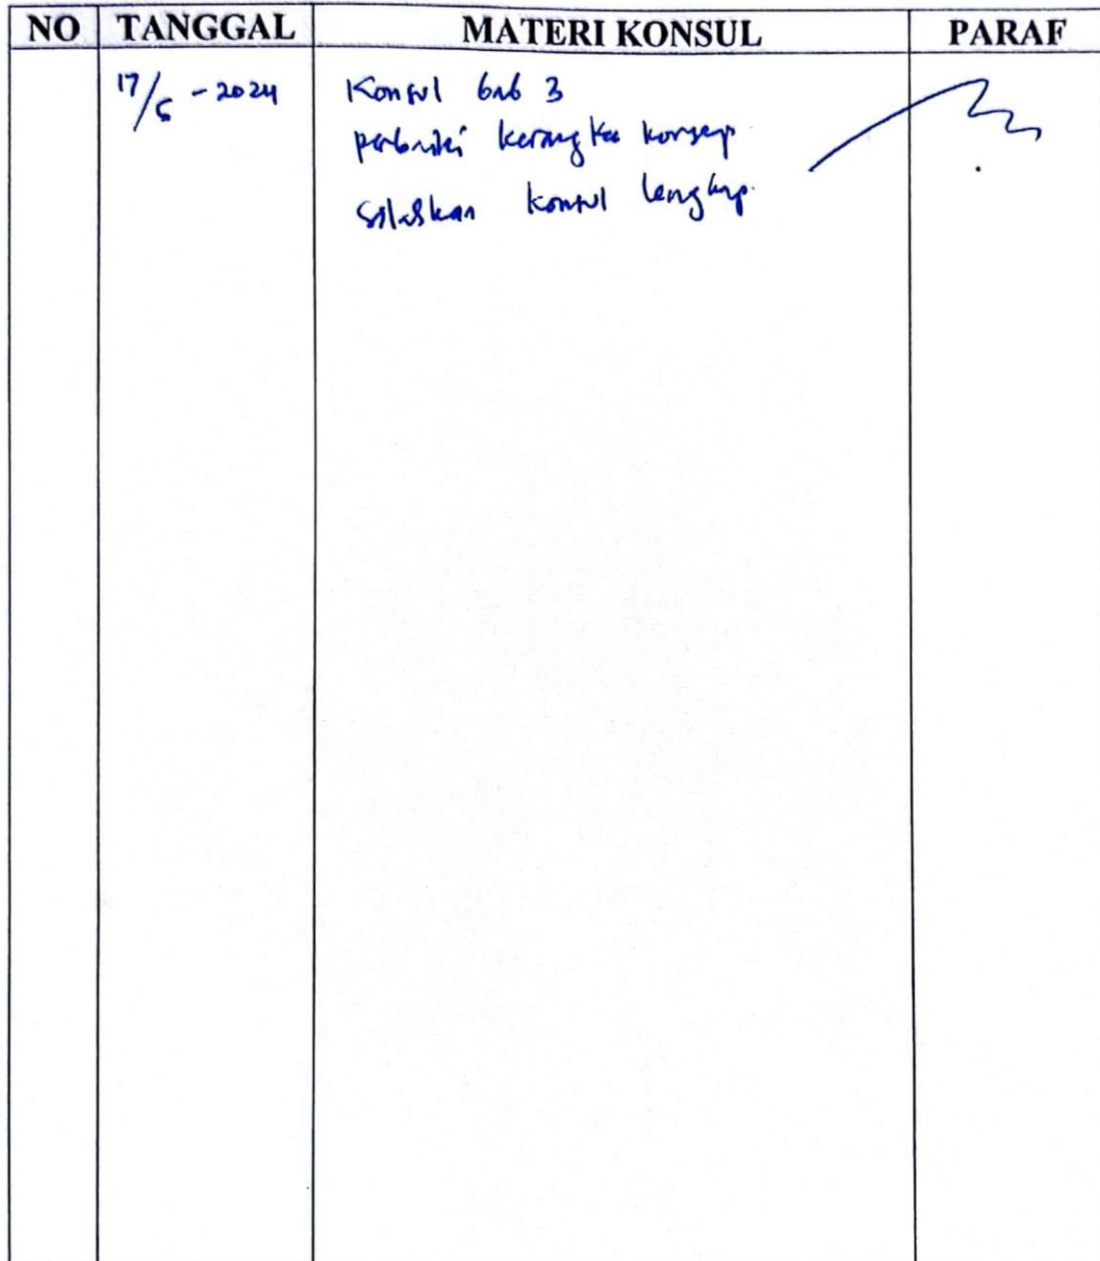 NO TANGGAL MATERI KONSUL PARAF
17/5 - 2024 Konsul bab 3
perbaiki kerangka konsep
silaskan konsul lengkap.